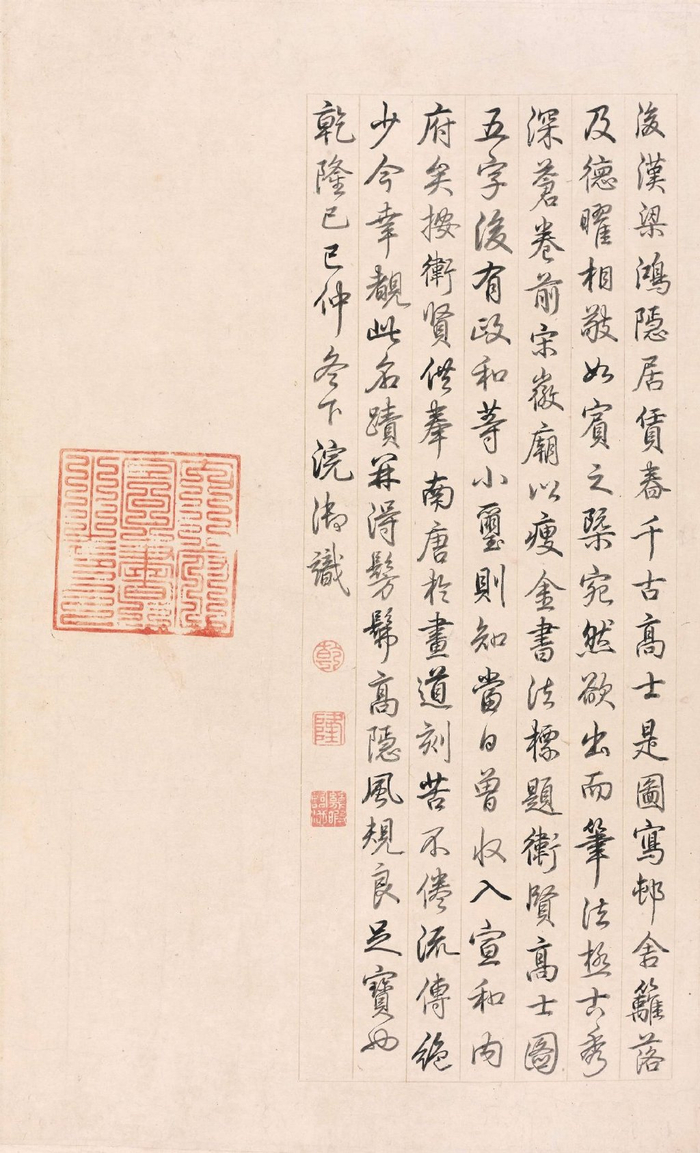 後漢梁鴻隱居賃舂千古高士是圖寫邨舍籬落
及德曜相敬如賓之槩宛然欲出而筆法極古秀
深蒼卷前宋徽廟以瘦金書法標題衛賢高士圖
五字後有政和等小璽則知當日曾收入宣和內
府矣按衛賢供奉南唐於畫道刻苦不倦流傳絕
少今幸覩此名蹟并得髣髴高隱風規良足寶也
乾隆己巳仲冬下浣御識
乾
隆